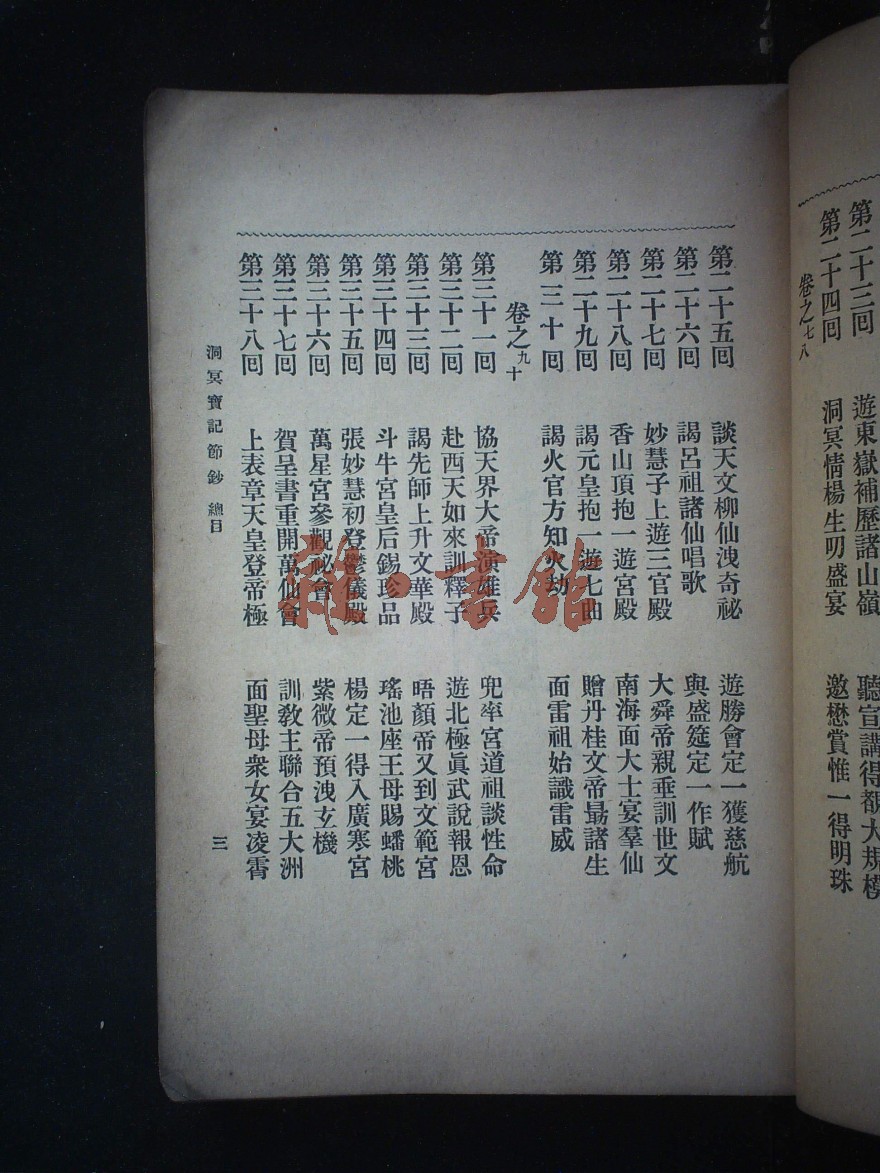 第二十三回 遊東嶽補歷諸山嶺 聽宣講得覩大規模
第二十四回 洞冥情楊生叨盛宴 邀懋賞惟一得明珠
卷之七八
第二十五回 談天文柳仙洩奇祕 遊勝會定一獲慈航
第二十六回 謁呂祖諸仙唱歌 與盛筵定一作賦
第二十七回 妙慧子上遊三官殿 大舜帝親垂訓世文
第二十八回 香山頂抱一遊宮殿 南海面大士宴羣仙
第二十九回 謁元皇抱一遊七曲 贈丹桂文帝勗諸生
第三十回 謁火官方知火劫 面雷祖始識雷威
卷之九十
第三十一回 協天界大帝演雄兵 兜率宮道祖談性命
第三十二回 赴西天如來訓釋子 遊北極眞武說報恩
第三十三回 謁先師上升文華殿 晤顏帝又到文範宮
第三十四回 斗牛宮皇后錫珍品 瑤池座王母賜蟠桃
第三十五回 張妙慧初登鬱儀殿 楊定一得入廣寒宮
第三十六回 萬星宮參觀祕會 紫微帝預洩玄機
第三十七回 賀呈書重開萬仙會 訓敎主聯合五大洲
第三十八回 上表章天皇登帝極 面聖母衆女宴凌霄
洞冥寶記節鈔 總目
三